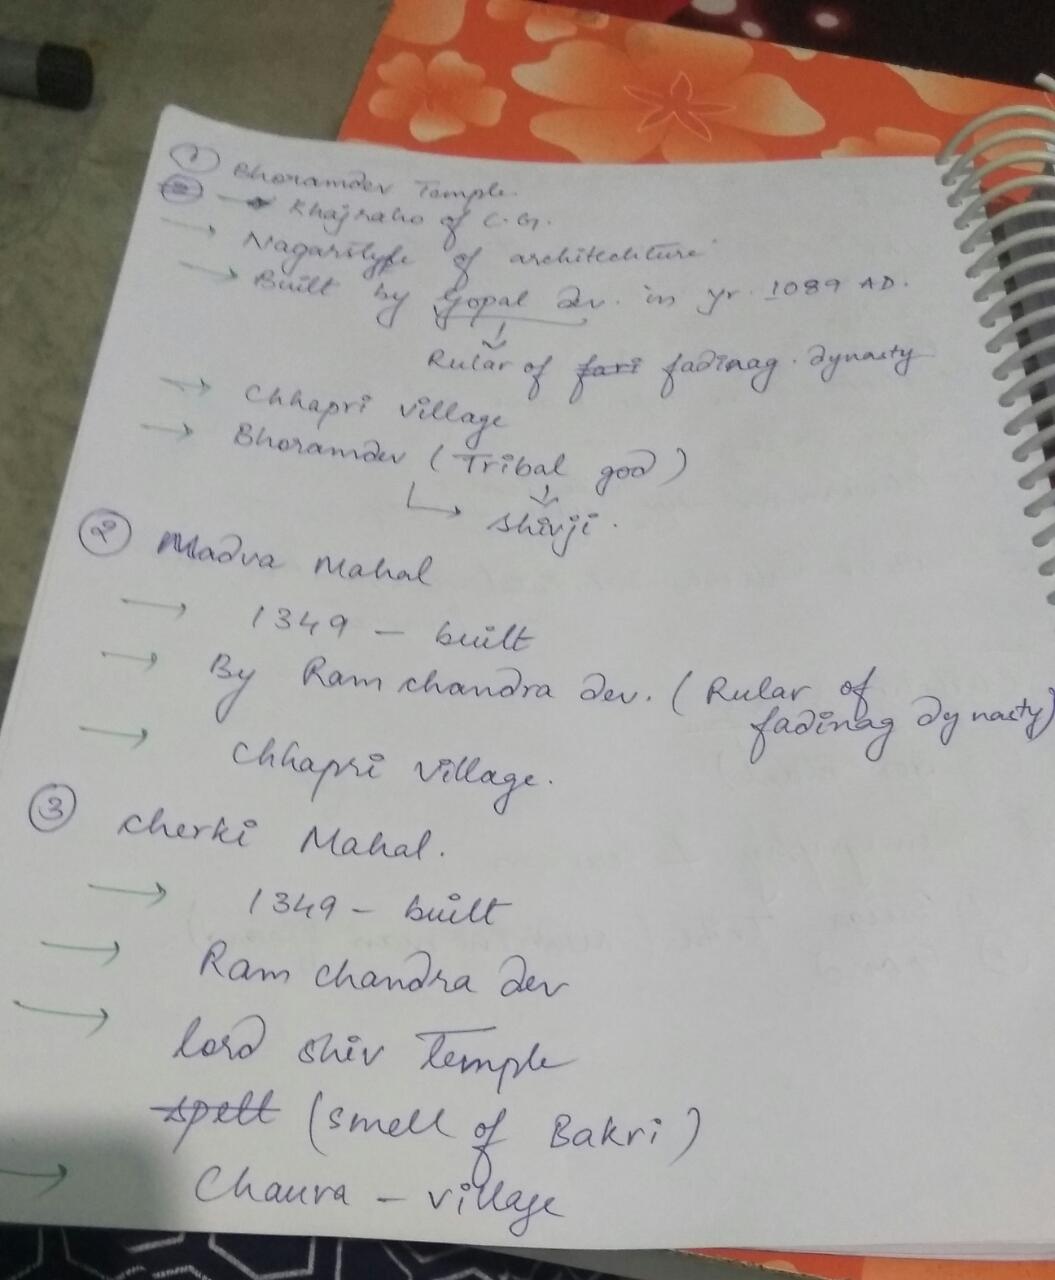 ① Bhoramdev Temple.
② → Khajraho of C.G.
→ Nagarstyle of architechture
→ Built by Gopal dev. in yr. 1089 AD.
Rular of fari fadinag. dynasty
→ Chhapri village
→ Bhoramdev (Tribal god)
↳ shivji.
② Madva Mahal
→ 1349 – built
→ By Ram chandra dev. (Rular of
fadinag dynasty)
→ Chhapri village.
③ cherki Mahal.
→ 1349 – built
→ Ram chandra dev
→ lord shiv Temple
spell (smell of Bakri)
→ Chaura – village